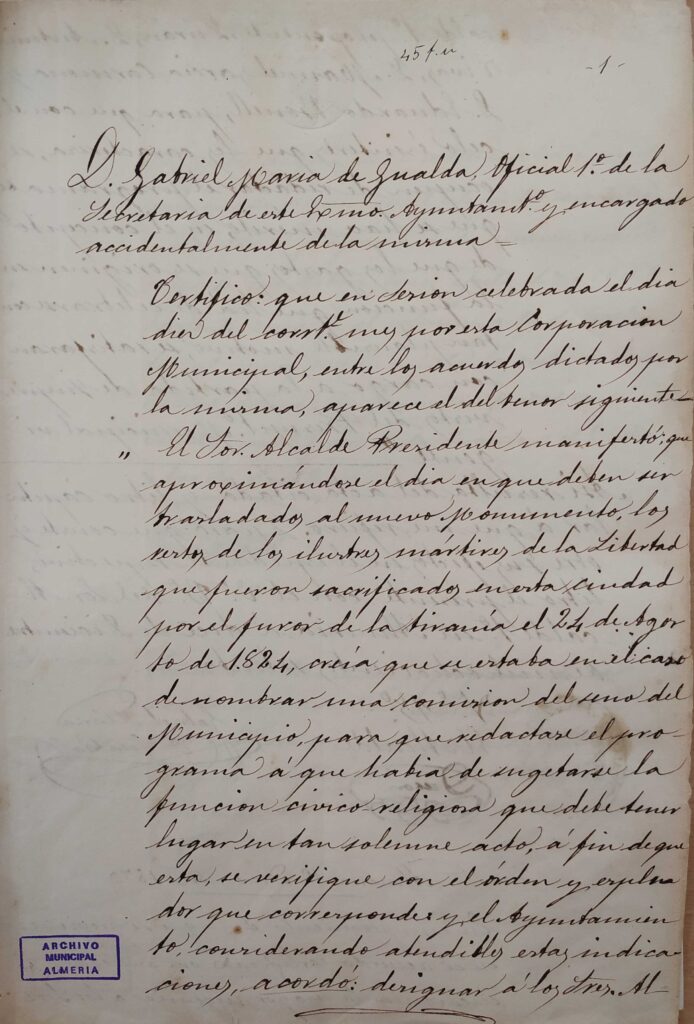 45 f. u
- 1 -
D. Gabriel Maria de Gualda, Oficial 1º. de la
Secretaria de este Exmo. Ayuntamtº. y encargado
accidentalmente de la misma =
Certifico: que en sesion celebrada el dia
diez del corrte. mes por esta Corporacion
Municipal, entre los acuerdos dictados por
la misma, aparece el del tenor siguiente =
" El Sor. Alcalde Presidente manifestó; que
aproximándose el dia en que deben ser
trasladados al nuevo Monumento, los
restos de los ilustres mártires de la Libertad
que fueron sacrificados en esta ciudad
por el furor de la tiranía el 24 de Agos-
to de 1.824, creía que se estaba en el caso
de nombrar una comision del seno del
Municipio, para que redactase el pro-
grama á que habia de sugetarse la
funcion civico-religiosa que debe tener
lugar en tan solemne acto, á fin de que
esta, se verifique con el órden y esplen
dor que corresponde; y el Ayuntamien
to, considerando atendibles estas indica-
ciones, acordó: designar á los Sres. Al-
ARCHIVO
MUNICIPAL
ALMERIA